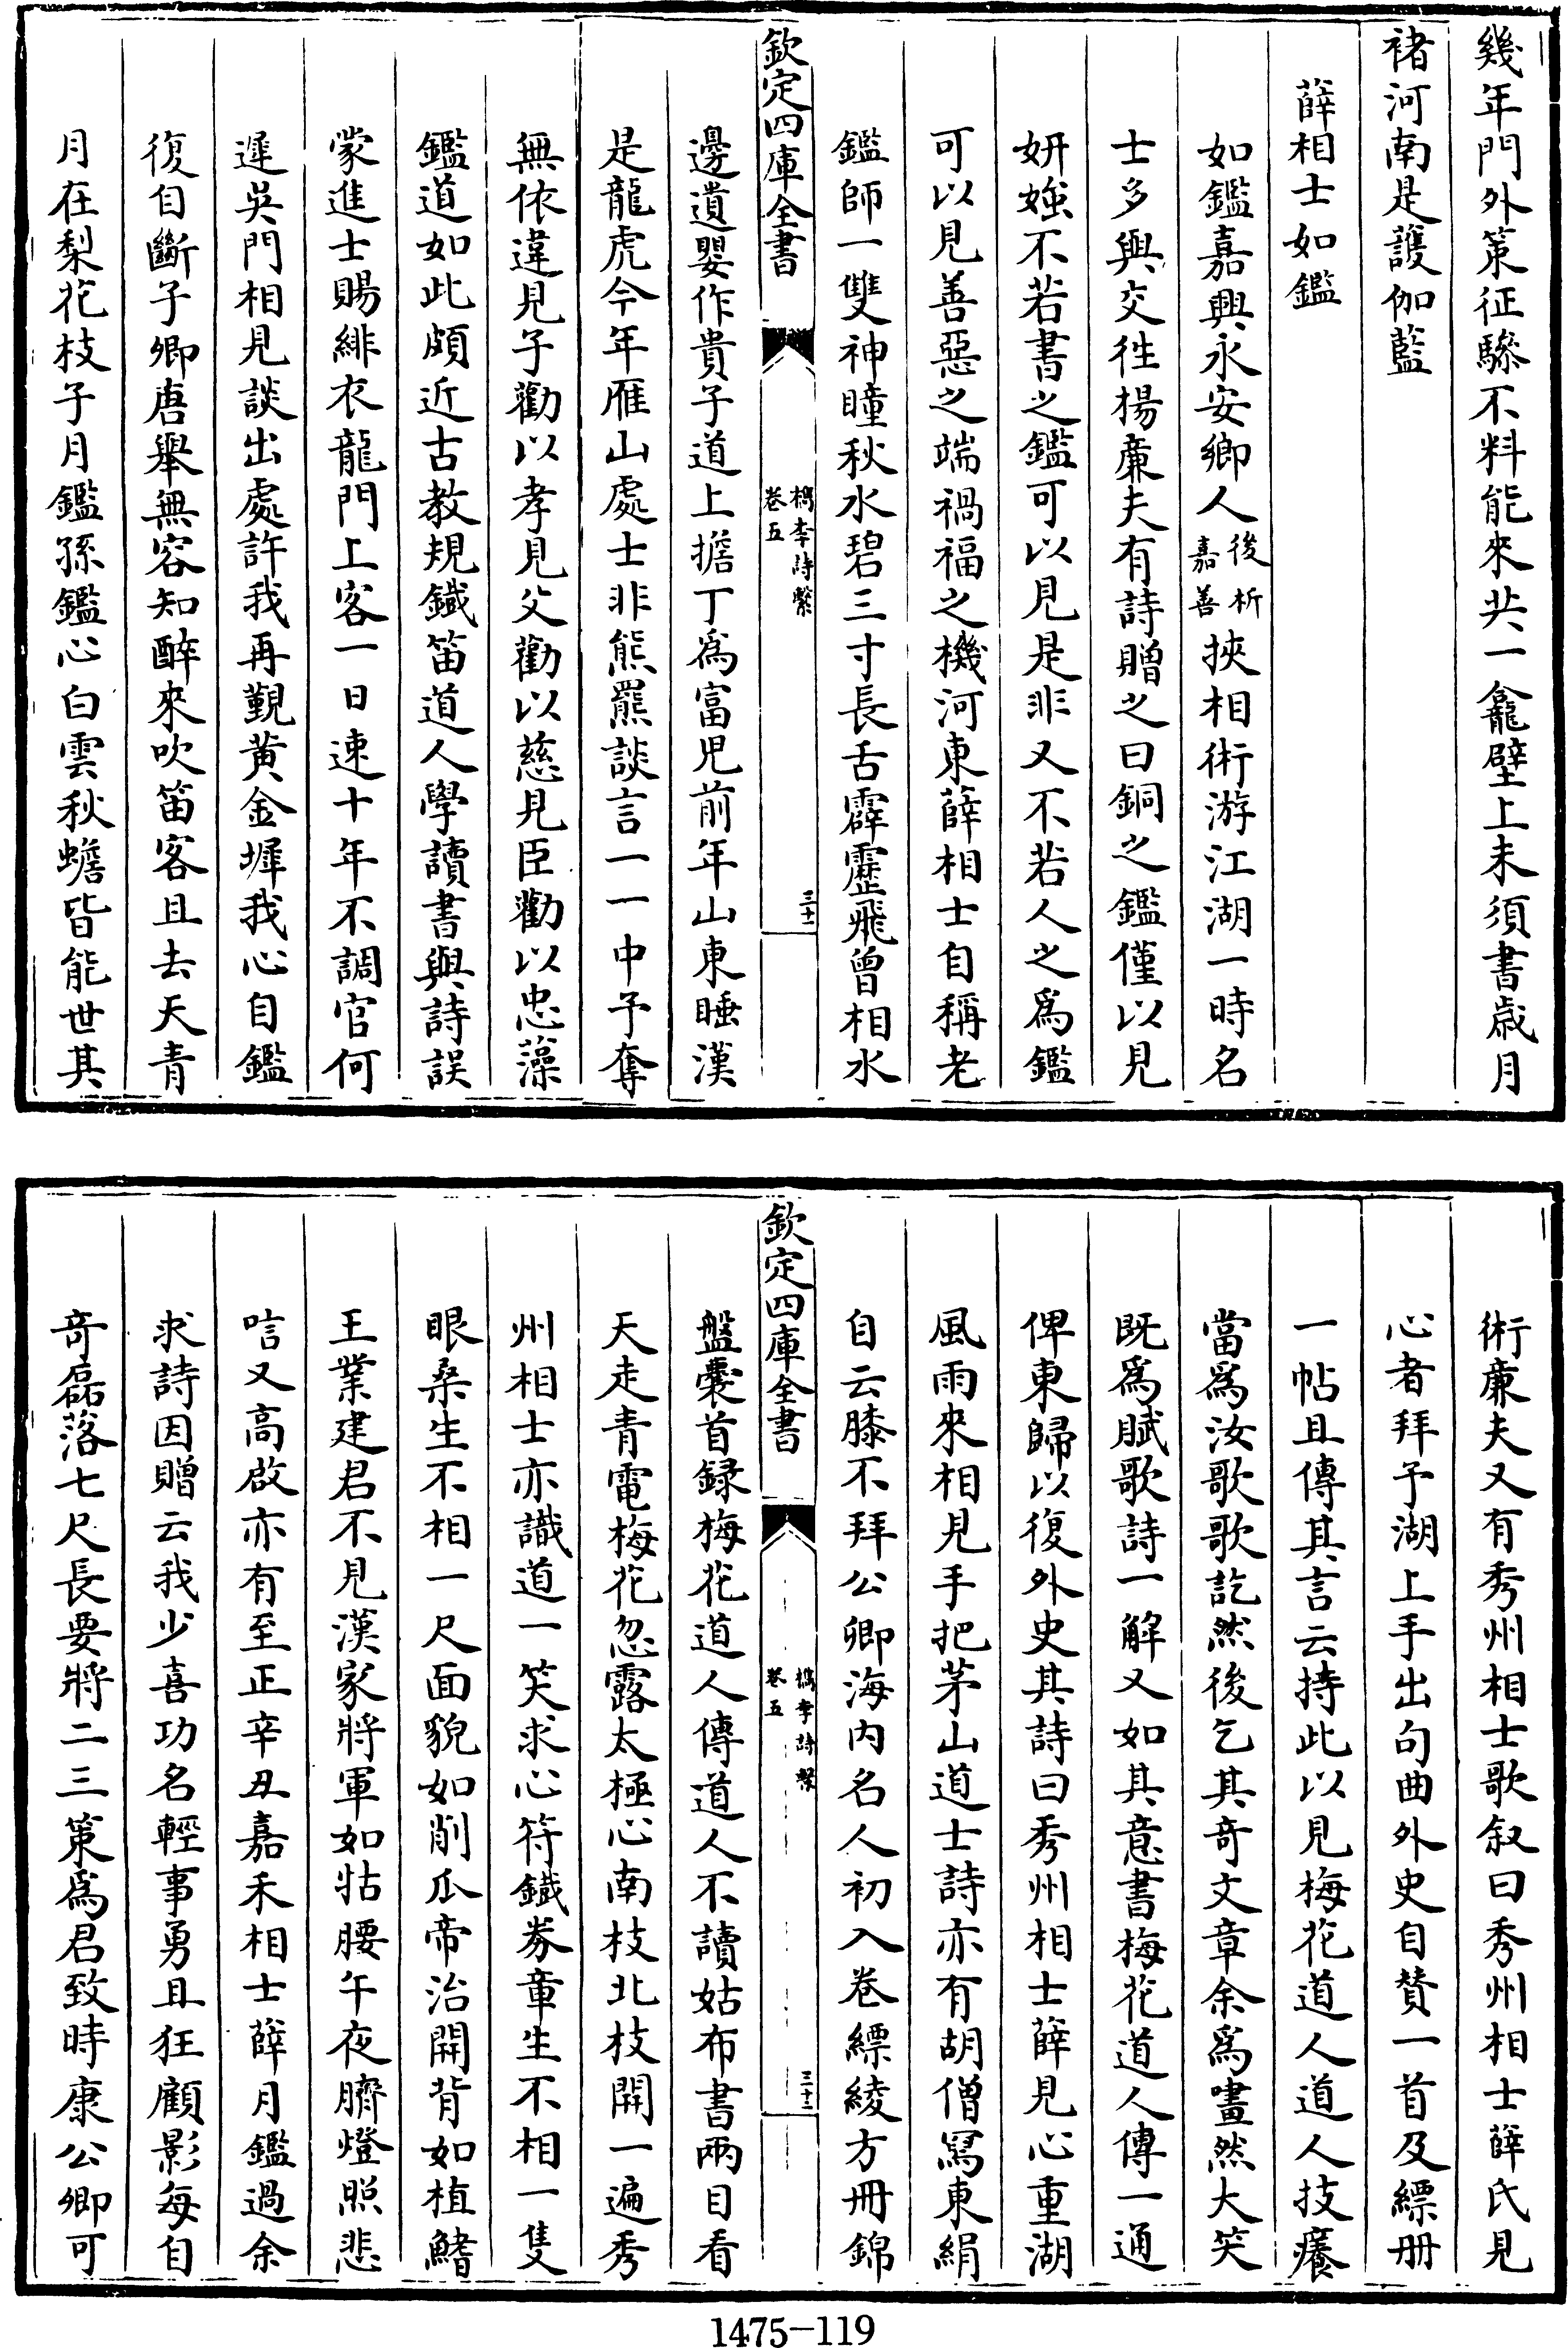 幾年門外策征驂不料能來共一龕壁上未須書歲月
褚河南是護伽藍
薛相士如鑑
如鑑嘉興永安鄉人後析嘉善挾相術游江湖一時名
士多與交徃楊廉夫有詩贈之曰銅之鑑僅以見
妍媸不若書之鑑可以見是非又不若人之為鑑
可以見善惡之端禍福之機河東薛相士自稱老
鑑師一雙神瞳秋水碧三寸長舌霹靂飛曾相水
欽定四庫全書
檇李詩繫
卷五
三十一
邊遺嬰作貴子道上擔丁為富児前年山東睡漢
是龍虎今年雁山處士非熊羆談言一一中予奪
無依違見子勸以孝見父勸以慈見臣勸以忠藻
鑑道如此頗近古教規鐵笛道人學讀書與詩誤
蒙進士賜緋衣龍門上客一日速十年不調官何
遲吳門相見談出處許我再觐黄金墀我心自鑑
復自斷子卿唐舉無容知醉來吹笛客且去天青
月在梨花枝子月鑑孫鑑心白雲秋蟾皆能世其
術廉夫又有秀州相士歌叙曰秀州相士薛氏見
心者拜予湖上手出句曲外史自賛一首及縹册
一帖且傳其言云持此以見梅花道人道人技癢
當為汝歌歌訖然後乞其奇文章余為盡然大笑
既為賦歌詩一解又如其意書梅花道人傳一通
俾東歸以復外史其詩曰秀州相士薛見心重湖
風雨來相見手把茅山道士詩亦有胡僧冩東絹
自云膝不拜公卿海内名人初入卷縹綾方冊錦
欽定四庫全書
檇李詩繫
卷五
三十二
盤囊首録梅花道人傳道人不讀姑布書兩目看
天走青電梅花忽露太極心南枝北枝開一遍秀
州相士亦識道一笑求心符鐵券章生不相一隻
眼桑生不相一尺面貌如削瓜帝治開背如植鰭
王業建君不見漢家將軍如牯腰午夜臍燈照悲
唁又高啟亦有至正辛丑嘉禾相士薛月鑑過余
求詩因贈云我少喜功名輕事勇且狂顧影每自
奇磊落七尺長要將二三策為君致時康公卿可
1475-119